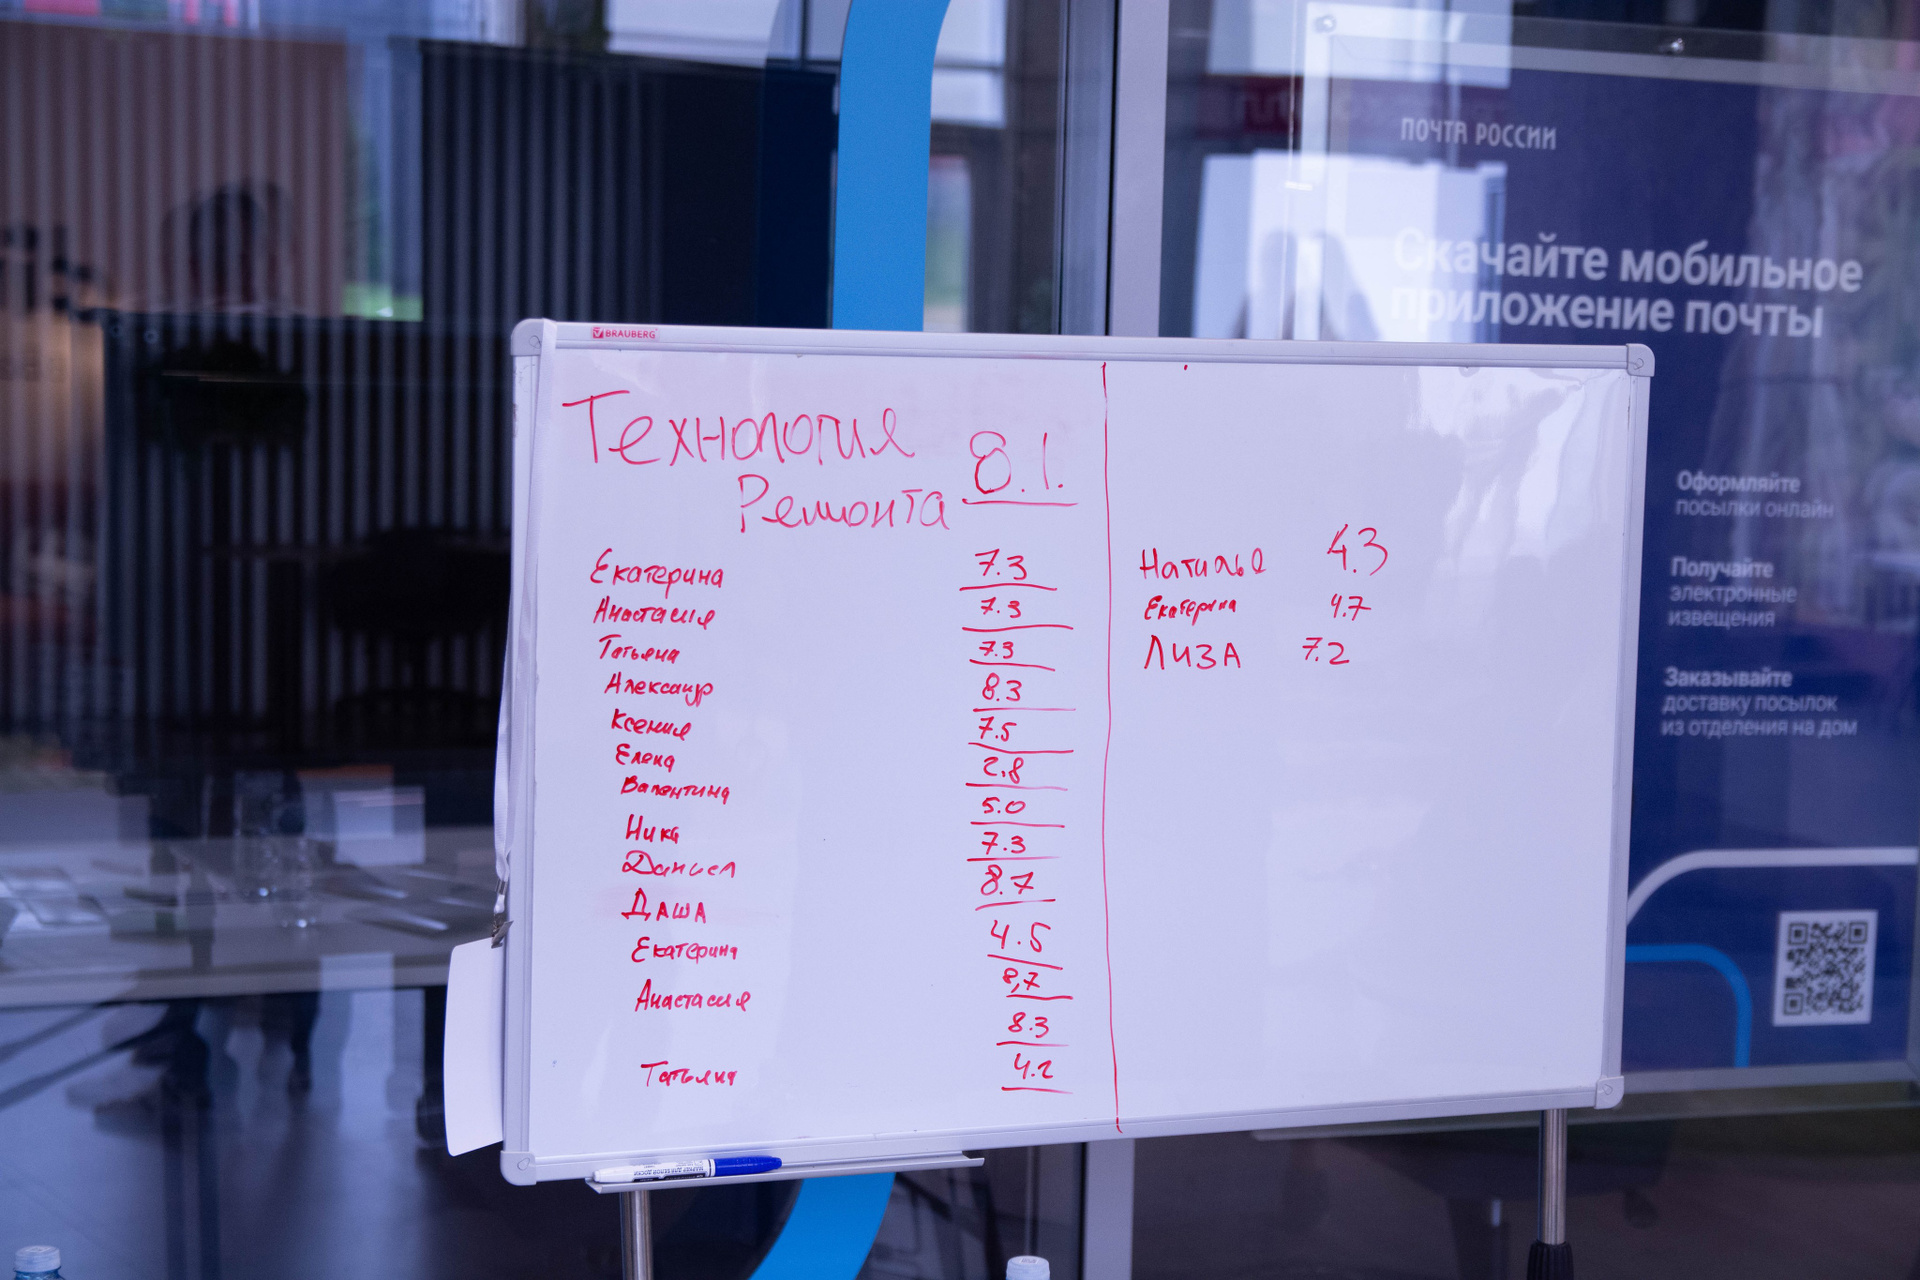 ПОЧТА РОССИИ
Скачайте мобильное
приложение почты
Оформляйте
посылки онлайн
Получайте
электронные
извещения
Заказывайте
доставку посылок
из отделения на дом
BRAUBERG
Технология 8.1.
Ремонта
Екатерина 7.3
Анастасия 7.3
Татьяна 7.3
Александр 8.3
Ксения 7.5
Елена 2.8
Валентина 5.0
Ника 7.3
Даниел 8.7
ДАША 4.5
Екатерина 8,7
Анастасия 8.3
Татьяна 4.2
Наталья 4.3
Екатерина 4.7
ЛИЗА 7.2